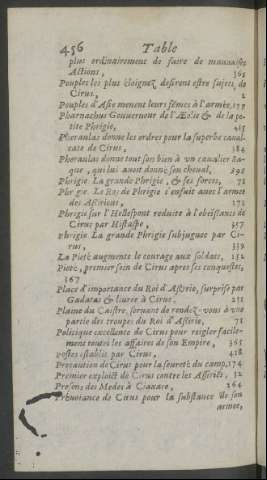 456 Table
plus ordinairement de faire de mauvaises
Actions, 365
Peuples les plus éloignez desirent estre sujets de
Cirus, 2
Peuples d'Asie menent leurs fêmes à l'armée, 177
Pharnachus Gouverneur de l'Æolie & de la petite
Phrigie, 415
Pheraulas donne les ordres pour la superbe cavalcade
de Cirus, 384
Pheraulas donne tout son bien à un cavalier Saque,
qui lui avoit donné son cheval, 392
Phrigie La grande Phrigie, & ses forces, 72
Phrigie. Le Roi de Phrigie s'enfuit avec l'armée
des Assiriens, 172
Phrigie sur l'Hellespont reduite à l'obeissance de
Cirus par Histaspe, 357
Phrigie. La grande Phrigie subjuguée par Cirus,
359
La Pieté augmente le courage aux soldats, 152
Pieté, premier soin de Cirus apres ses conquestes,
367
Place d'importance du Roi d'Assirie, surprise par
Gadatas & livrée à Cirus, 251
Plaine du Caistre, servant de rendez-vous à une
partie des troupes du Roi d'Assirie, 71
Politique excellante de Cirus pour reigler facilement
toutes les affaires de son Empire, 365
Postes establis par Cirus, 418
Precaution de Cirus pour la seureté du camp, 174
Premier exploict de Cirus contre les Assiriens, 52
Presens des Medes à Ciaxare, 264
Prevoiance de Cirus pour la substance de son
armée,